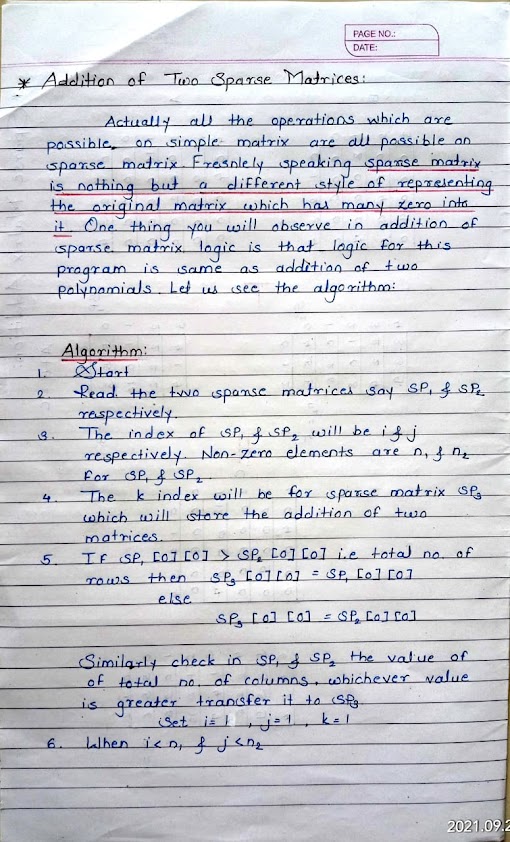 PAGE NO.:
DATE:
* Addition of Two Sparse Matrices:
Actually all the operations which are
possible on simple matrix are all possible on
sparse matrix. Fresnlely speaking sparse matrix
is nothing but a different style of representing
the original matrix which has many zero into
it. One thing you will observe in addition of
sparse matrix logic is that logic for this
program is same as addition of two
polynomials. Let us see the algorithm:
Algorithm:
1. Start
2. Read the two sparse matrices say SP₁ & SP₂
respectively.
3. The index of SP₁ & SP₂ will be i & j
respectively. Non-zero elements are n₁ & n₂
for SP₁ & SP₂.
4. The k index will be for sparse matrix SP₃
which will store the addition of two
matrices.
5. If SP₁ [0] [0] > SP₂ [0] [0] i.e total no. of
rows then SP₃ [0] [0] = SP₁ [0] [0]
else
SP₃ [0] [0] = SP₂ [0] [0]
Similarly check in SP₁ & SP₂ the value of
of total no. of columns, whichever value
is greater transfer it to SP₃
Set i=1, j=1, k=1
6. When i<n₁ & j<n₂
2021.09.2